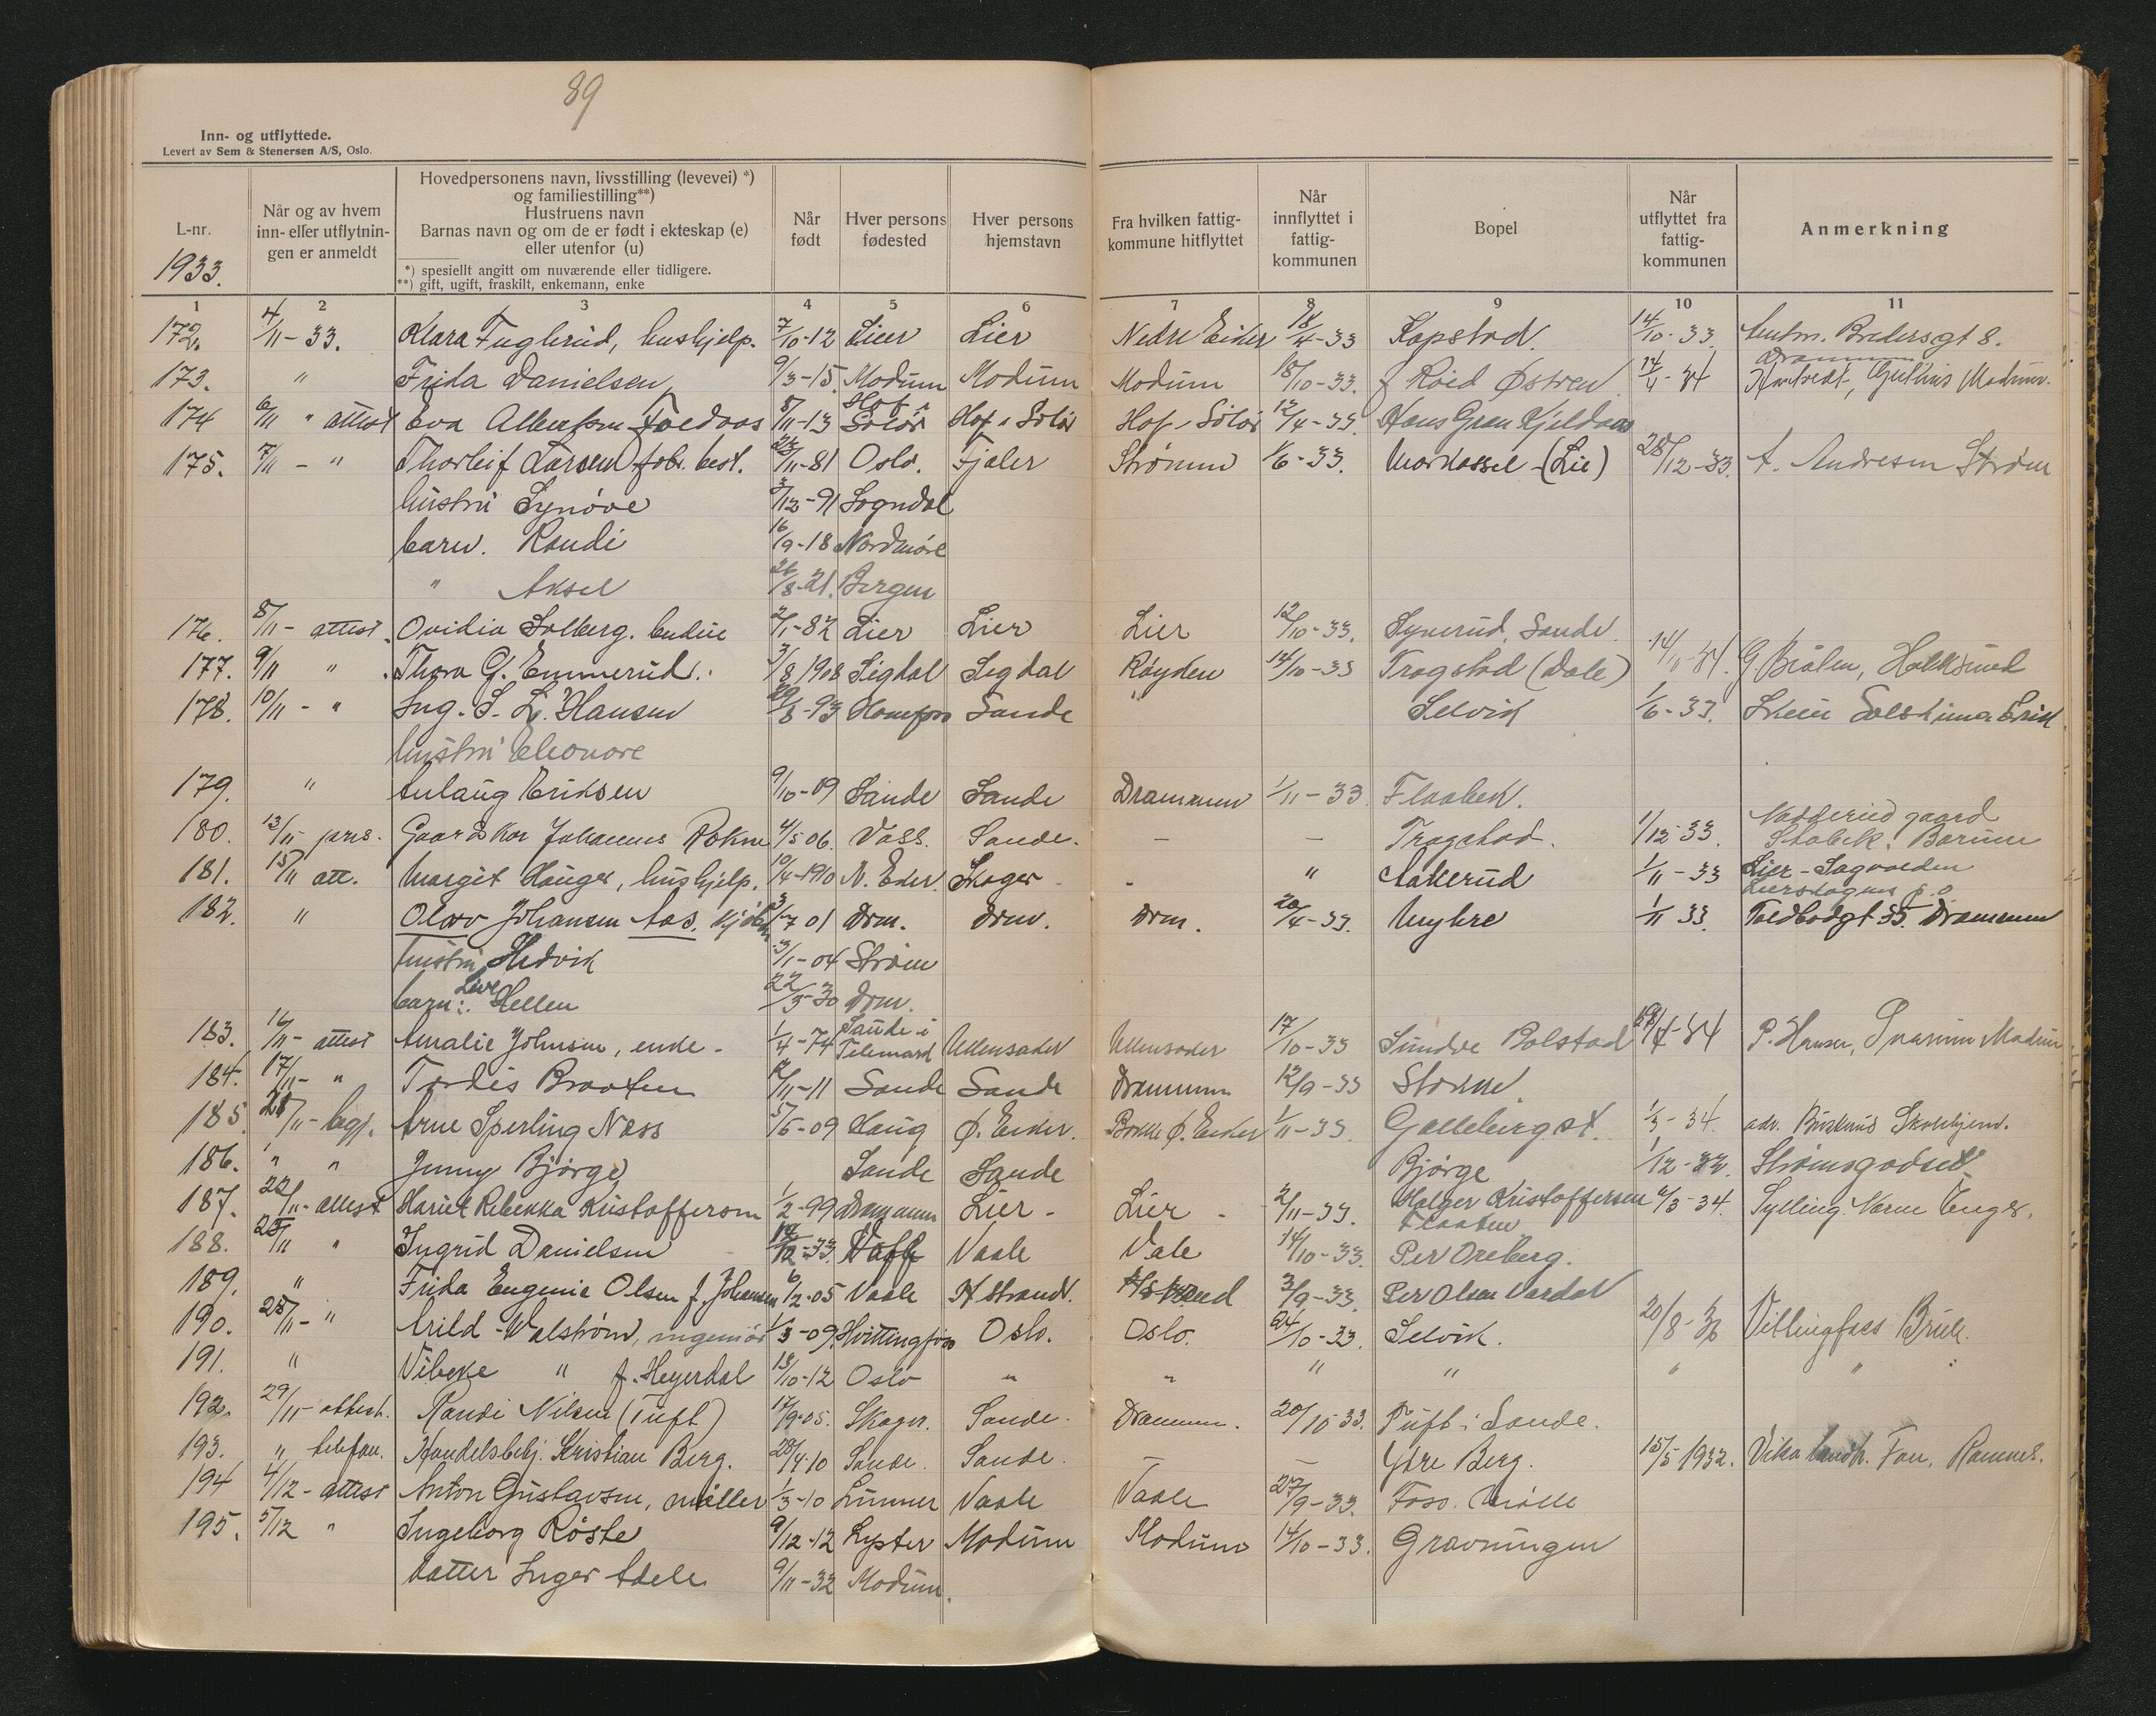 89
Inn- og utflyttede.
Levert av Sem & Stenersen A/S, Oslo.
L-nr.
1933.
Når og av hvem
inn- eller utflytnin-
gen er anmeldt
Hovedpersonens navn, livsstilling (levevei) *)
og familiestilling**)
Hustruens navn
Barnas navn og om de er født i ekteskap (e)
eller utenfor (u)
*) spesielt angitt om nuværende eller tidligere.
**) gift, ugift, fraskilt, enkemann, enke
Når
født
Hver persons
fødested
Hver persons
hjemstavn
Fra hvilken fattig-
kommune hitflyttet
Når
innflyttet i
fattig-
kommunen
Bopel
Når
utflyttet fra
fattig-
kommunen
Anmerkning
1 2 3 4 5 6 7 8 9 10 11
172. 4/11-33. Klara Fuglerud, hushjelp. 7/10-12 Lier Lier Nedre Eiker 18/4-33 Kopstad. 14/10-33. Bredersgt 8.
Drammen
173. " Frida Danielsen 9/3-15. Modum Modum Modum 18/10-33. f Røed Østren 14/4-34 Modum.
174 6/11 " attest Eva Albertsen Foedaas 8/11-13 Hof i Solør Hof i Solør Hof i Solør 12/4-33. Hans Gran Kjeldaas
175. 7/11 - " Thorleif Larsen fabr. best. 22/11-81 Oslo. Fjaler Strømm 1/6-33. (Lie) 28/12-33. A. Andresen Strøm
hustru Synøve 3/12-91 Sogndal
barn. Randi 16/9-18 Nordmøre
" Aksel 26/8-21. Bergen
176. 8/11- attest. Ovidia Solberg. budeie 2/1-82 Lier Lier Lier 12/10-33. Synerud, Sande.
177. 9/11 " Thora G. Emmerud. 3/8 1908 Sigdal Sigdal Røyken 14/10-33 Tragstad (Dale) 14/11-34. G. Braaten, Hokksund
178. 10/11 - " Ing. S. L. Hansen 29/8-93 Sande " Selvik 1/6-33. Skien
hustru Eleonore
179. " Aslaug Eriksen 9/10-09 Sande Sande Drammen 1/11-33 Flaabek.
180. 13/11 pers. Gaardskar Johannes Rokne 4/5 06. Voss. Sande. - - Tragstad. 1/12-33. Nadderud gaard
Stabek. Bærum
181. 15/11 att. Margit Hauger, hushjelp. 10/4-1910 N. Eker. Skoger - " Aakerud 1/11-33 Lier - Sagvolden
Lierskogen p.o
182. " Olav Johansen Aas. 3/7 01 Drm. Drm. Drm. 20/4-33. Myhre 1/11 33. Toldbodgt 55. Drammen
hustru Hedvik 3/1-04 Strøm
barn: Live Hellen 22/3-30 Drm.
183. 16/11- attest Amalie Johnsen, enke - 1/4-74 Saude i Telemark Ullensaker Ullensaker 17/10-33 Sundve Bolstad P. Hansen, Snarum Modum
184. 17/11- " Tordis Braaten 2/11-11 Sande Sande Drammen 12/9-33 Stokke.
185. 21/11- begj. Arne Sperling Næss 5/5-09 Haug Ø. Eiker. Bakke Ø. Eiker 1/11-33. Galleberg st. 1/3-34. adr. Buskerud Skolehjem.
186. " " Jenny Bjørge Sande Sande Bjørge 1/12-32. Strømsgodset
187. 22/11- attest Hariet Rebekka Kristoffersen 1/2-99 Drammen Lier - Lier - 2/11-33. Holger Kristoffersen 6/3-34. Sylling. Enger.
Flaaten
188. 25/11 " Ingrid Danielsen Vaale Vale 14/10-33. Per Oreberg.
189. " Frida Eugenie Olsen f. Johansen 6/2-05 Vaale H strand. 3/9-33. Per Olsen Vardal
190. 28/11- " Arild Walstrøm, ingeniør 1/3-09. Hvittingfoss Oslo. Oslo. 24/10-33. Selvik. 20/8-36 Vittingfoss Bruk.
191. " Vibeke " f. Heyerdal 13/10-12 Oslo " " " " " " "
192. 29/11- attest. Randi Nilsen (Tuft) 17/9-05. Skoger. Sande. Drammen. 20/10 33. Tuft i Sande.
193. " telefon. Handelsbetj. Kristian Berg. 28/4-10 Sande. Sande. - - Ytre Berg. 15/5 1932. Vika landh. Fon, Ramnes.
194 4/12- attest Anton Gustavsen, møller 1/3-10 Lunner Vaale Vaale 27/9-33. Foss Mølle
195. 5/12 " Ingeborg Røste 9/12-12 Lyster Modum Modum 14/10-33. Gravningen
datter Inger Adele 9/11-32 Modum.